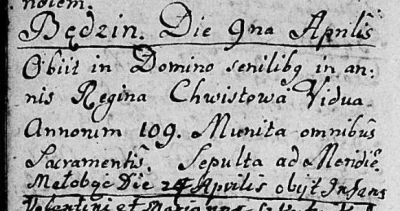 Będzin. Die 9na Aprilis
Obiit in Domino senilibg in an:
nis Regina Chwistowa Vidua
Annorum 109. Munita omnibus
Sacramentis. Sepulta ad Meridiē
Małobgc Die 24 Aprilis obijt Infans
Valentini et Marianna